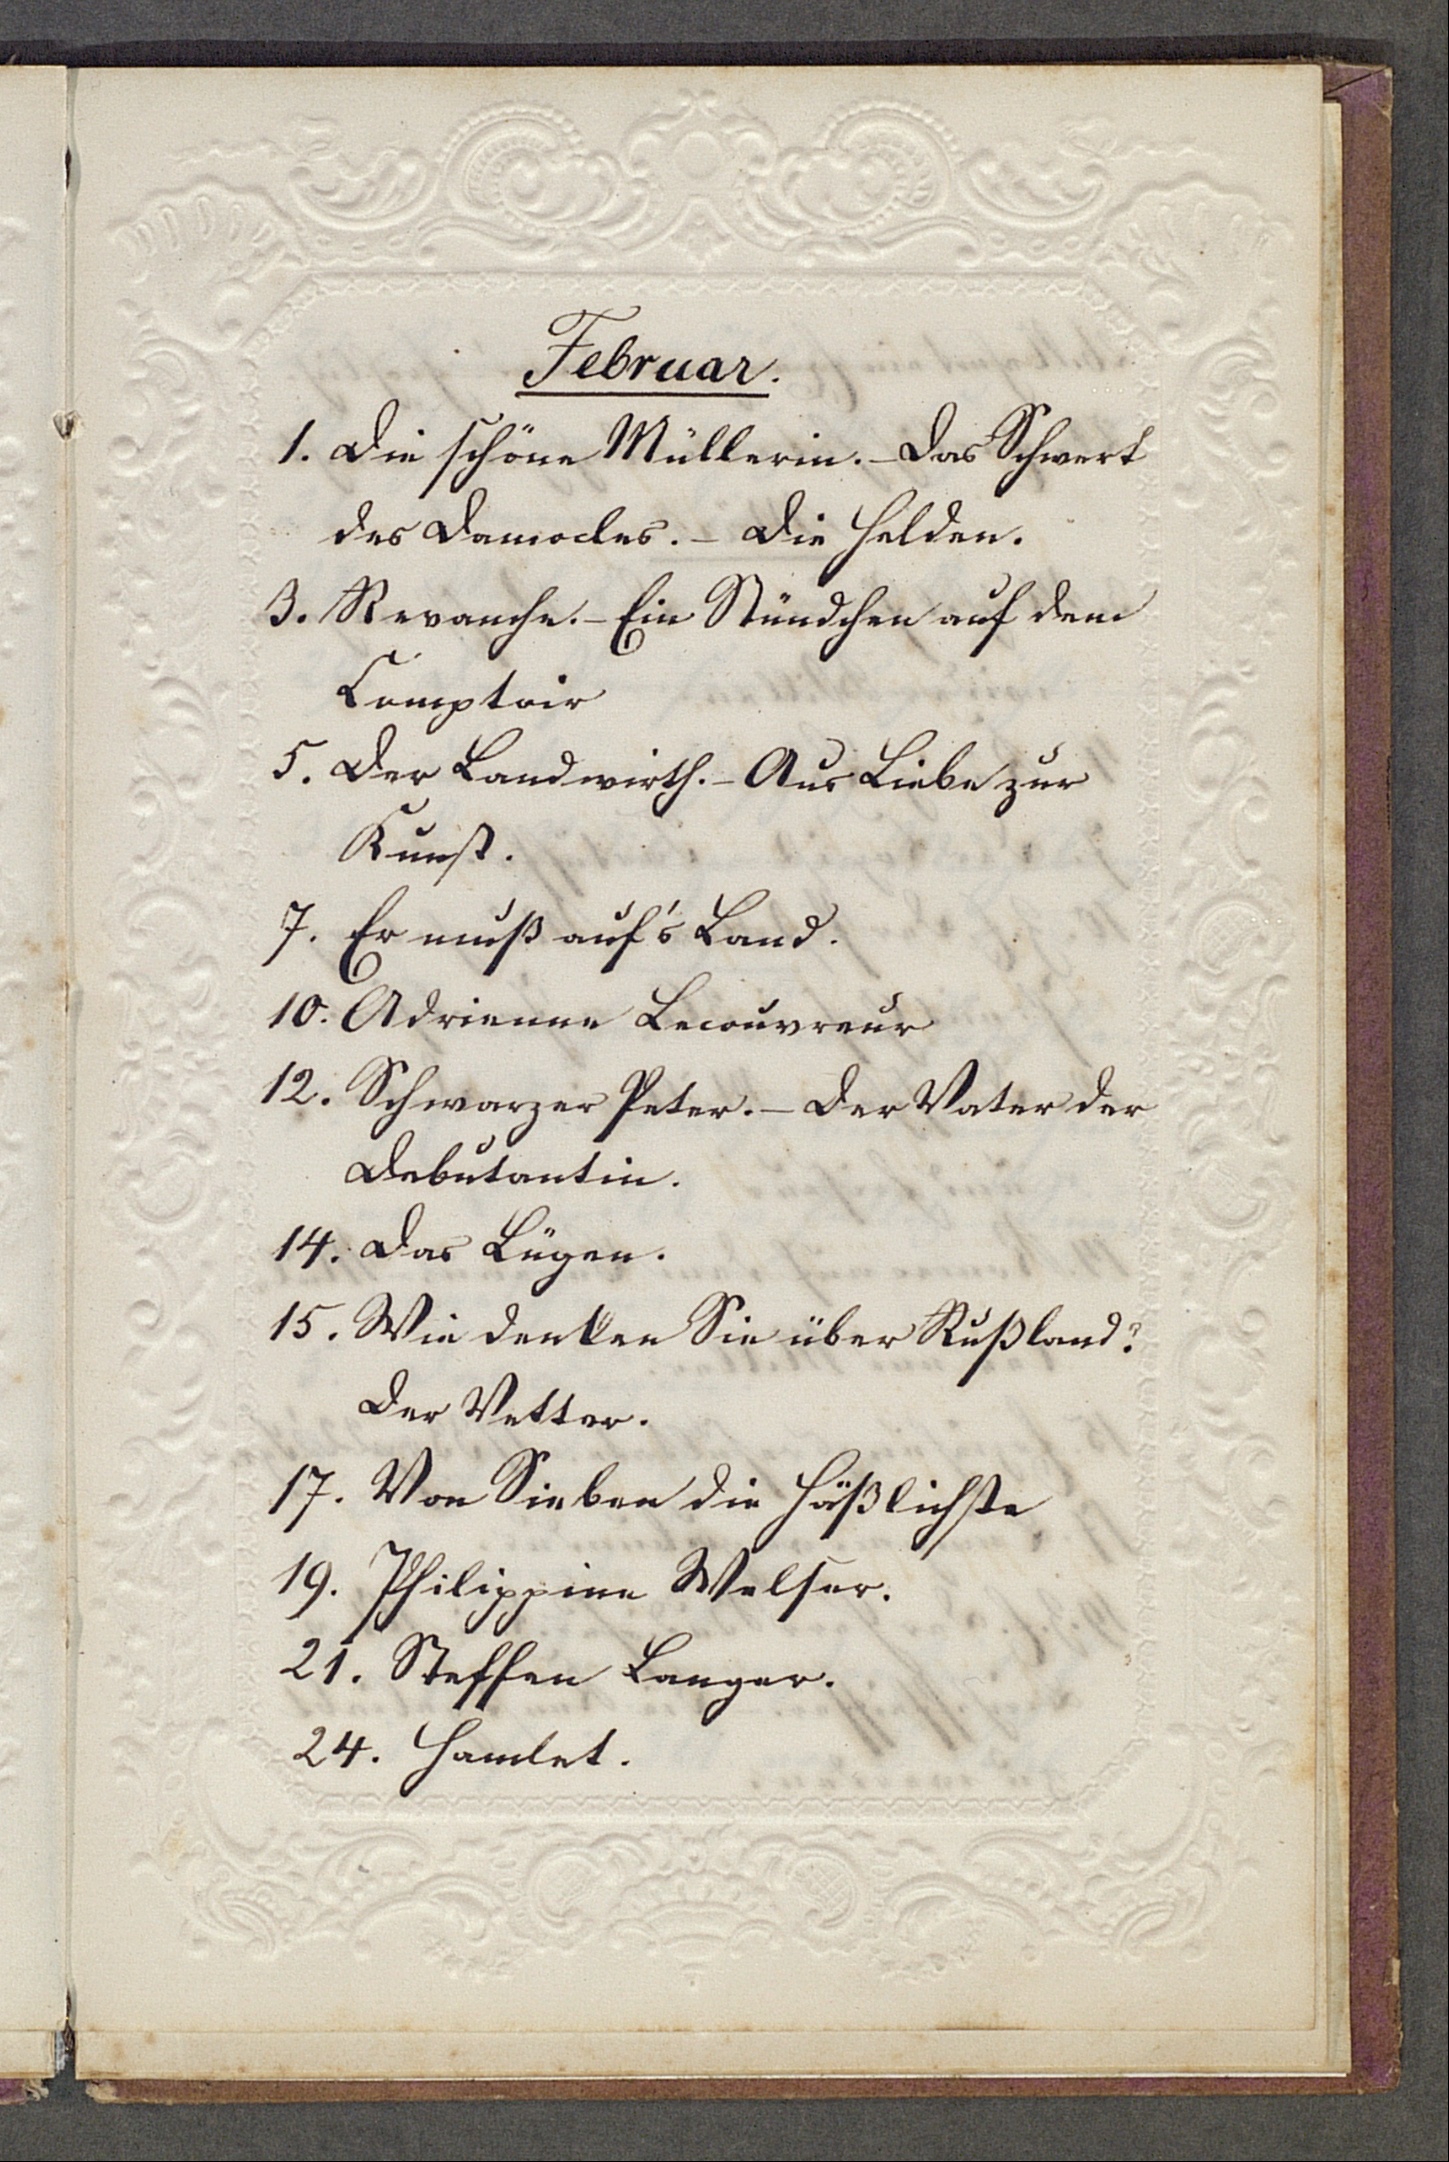 Februar.
1. Die schöne Müllerin. – Das Schwert
des Damocles. – Die Helden.
3. Revanche. – Ein Stündchen auf dem
Comptoir
5. Der Landwirth. – Aus Liebe zur
Kunst.
7. Er muß auf's Land.
10. Adrienne Lecouvreur
12. Schwarzer Peter. – Der Vater der
Debutantin.
14. Das Lügen.
15. Wie denken Sie über Rußland?
Der Vetter.
17. Von Sieben die Häßlichste
19. Philippine Welser.
21. Steffen Langer.
24. Hamlet.